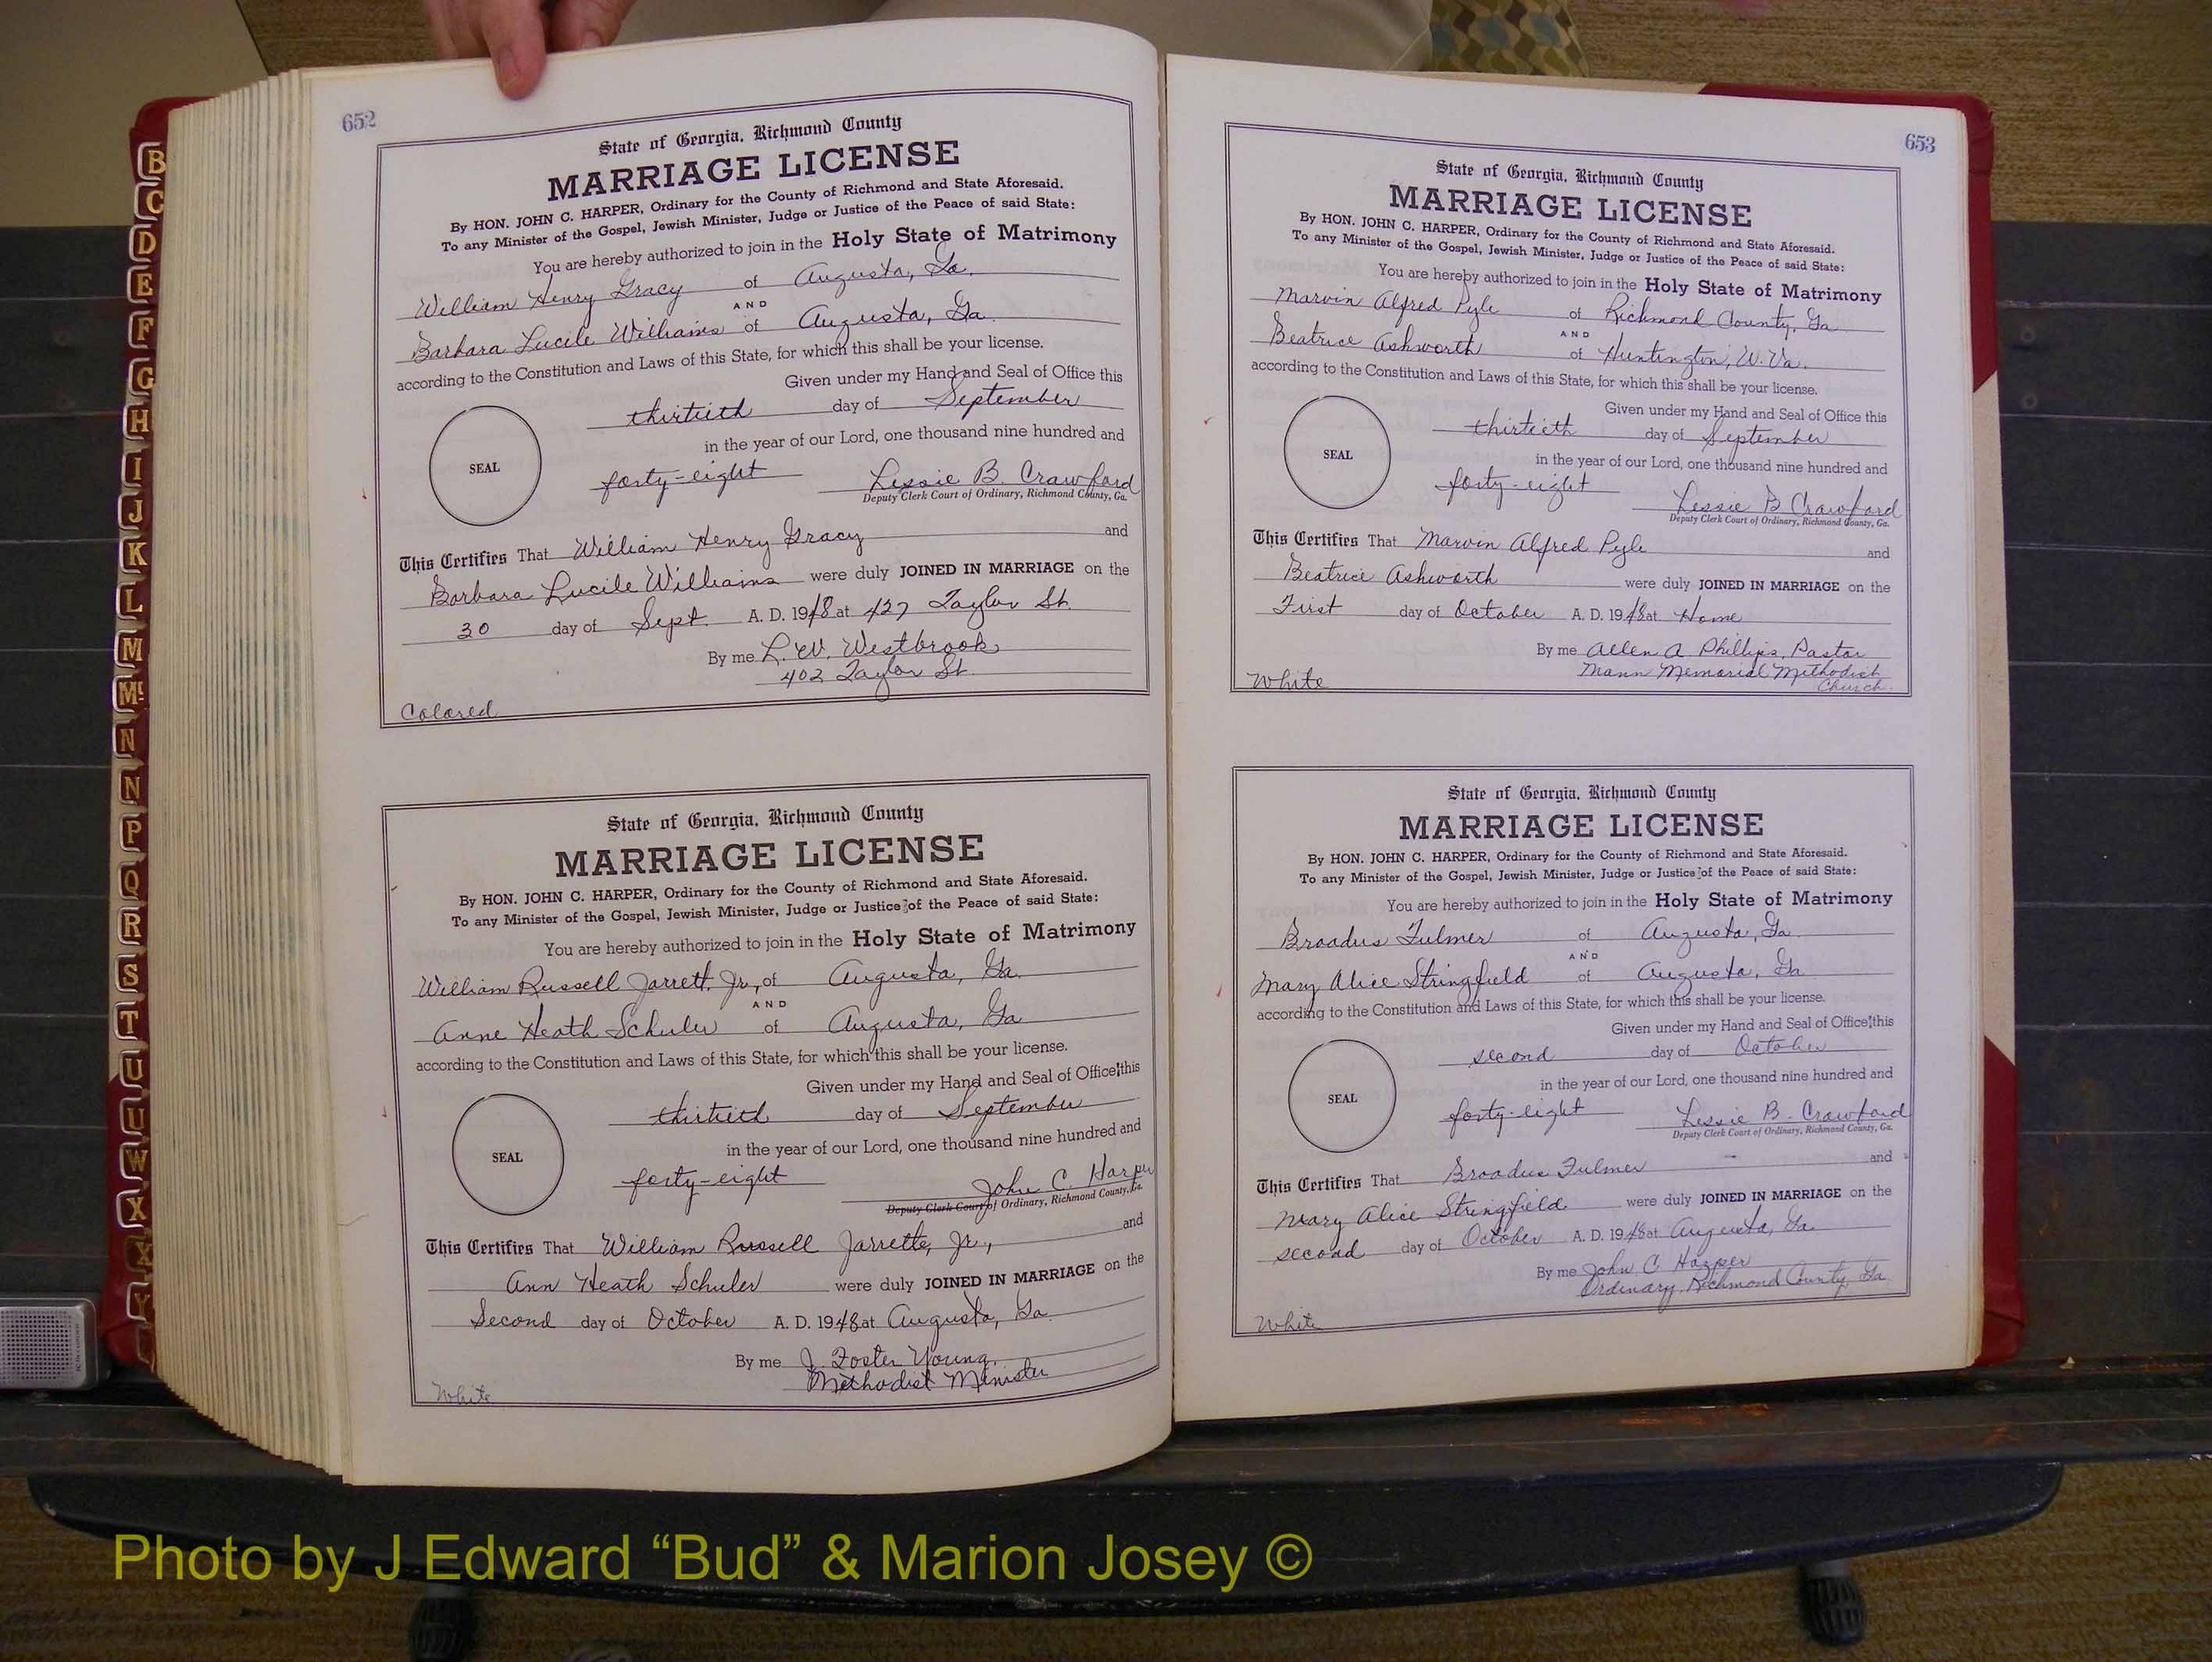 652
State of Georgia, Richmond County
MARRIAGE LICENSE
By HON. JOHN C. HARPER, Ordinary for the County of Richmond and State Aforesaid.
To any Minister of the Gospel, Jewish Minister, Judge or Justice of the Peace of said State:
You are hereby authorized to join in the Holy State of Matrimony
William Henry Gracy of Augusta, Ga.
AND
Barbara Lucile Williams of Augusta, Ga.
according to the Constitution and Laws of this State, for which this shall be your license.
Given under my Hand and Seal of Office this
thirtieth day of September
in the year of our Lord, one thousand nine hundred and
SEAL
forty-eight Lessie B. Crawford
Deputy Clerk Court of Ordinary, Richmond County, Ga.
This Certifies That William Henry Gracy and
Barbara Lucile Williams were duly JOINED IN MARRIAGE on the
30 day of Sept. A. D. 1948 at 427 Taylor St.
By me L. W. Westbrook
402 Taylor St.
Colored
State of Georgia, Richmond County
MARRIAGE LICENSE
By HON. JOHN C. HARPER, Ordinary for the County of Richmond and State Aforesaid.
To any Minister of the Gospel, Jewish Minister, Judge or Justice of the Peace of said State:
You are hereby authorized to join in the Holy State of Matrimony
William Russell Jarrett, Jr., of Augusta, Ga.
AND
Anne Heath Schuler of Augusta, Ga
according to the Constitution and Laws of this State, for which this shall be your license.
Given under my Hand and Seal of Office this
thirtieth day of September
in the year of our Lord, one thousand nine hundred and
SEAL
forty-eight John C. Harper
Deputy Clerk Court of Ordinary, Richmond County, Ga.
This Certifies That William Russell Jarrette, Jr., and
Ann Heath Schuler were duly JOINED IN MARRIAGE on the
Second day of October A. D. 1948 at Augusta, Ga.
By me J. Foster Young,
Methodist Minister
White
653
State of Georgia, Richmond County
MARRIAGE LICENSE
By HON. JOHN C. HARPER, Ordinary for the County of Richmond and State Aforesaid.
To any Minister of the Gospel, Jewish Minister, Judge or Justice of the Peace of said State:
You are hereby authorized to join in the Holy State of Matrimony
Marvin Alfred Pyle of Richmond County, Ga
AND
Beatrice Ashworth of Huntington, W. Va.
according to the Constitution and Laws of this State, for which this shall be your license.
Given under my Hand and Seal of Office this
thirtieth day of September
in the year of our Lord, one thousand nine hundred and
SEAL
forty-eight Lessie B Crawford
Deputy Clerk Court of Ordinary, Richmond County, Ga.
This Certifies That Marvin Alfred Pyle and
Beatrice Ashworth were duly JOINED IN MARRIAGE on the
First day of October A. D. 1948 at Home
By me Allen A. Phillips, Pastor
Mann Memorial Methodist
Church.
White
State of Georgia, Richmond County
MARRIAGE LICENSE
By HON. JOHN C. HARPER, Ordinary for the County of Richmond and State Aforesaid.
To any Minister of the Gospel, Jewish Minister, Judge or Justice of the Peace of said State:
You are hereby authorized to join in the Holy State of Matrimony
Broadus Fulmer of Augusta, Ga
AND
Mary Alice Stringfield of Augusta, Ga
according to the Constitution and Laws of this State, for which this shall be your license.
Given under my Hand and Seal of Office this
second day of October
in the year of our Lord, one thousand nine hundred and
SEAL
forty-eight Lessie B. Crawford
Deputy Clerk Court of Ordinary, Richmond County, Ga.
This Certifies That Broadus Fulmer and
Mary Alice Stringfield were duly JOINED IN MARRIAGE on the
second day of October A. D. 1948 at Augusta, Ga.
By me John C. Harper
Ordinary, Richmond County, Ga
White
B
C
D
E
F
G
H
I
J
K
L
M
Mc
N
N
P
Q
R
S
T
U
U
W
X
X
Y
Photo by J Edward “Bud” & Marion Josey ©